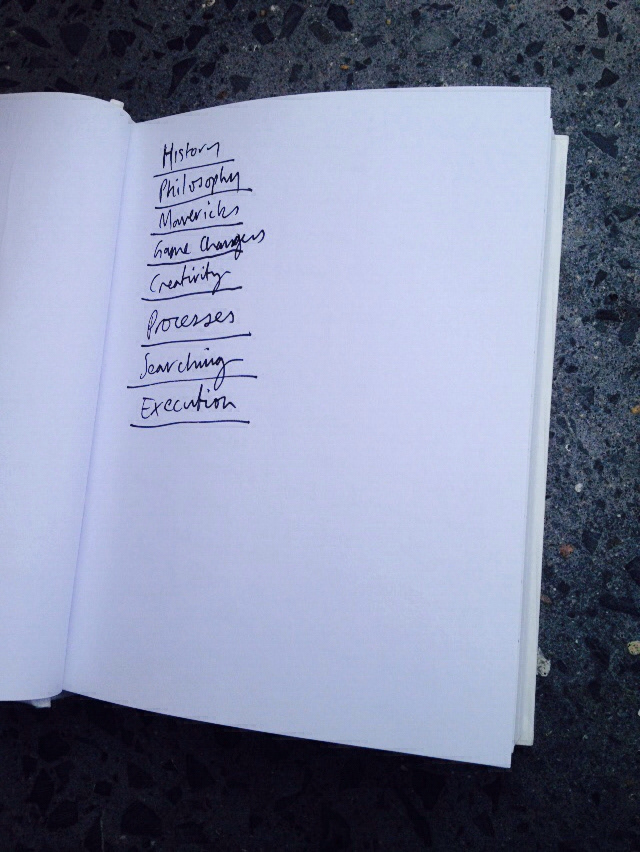 History
Philosophy
Mavericks
Game Changers
Creativity
Processes
Searching
Execution